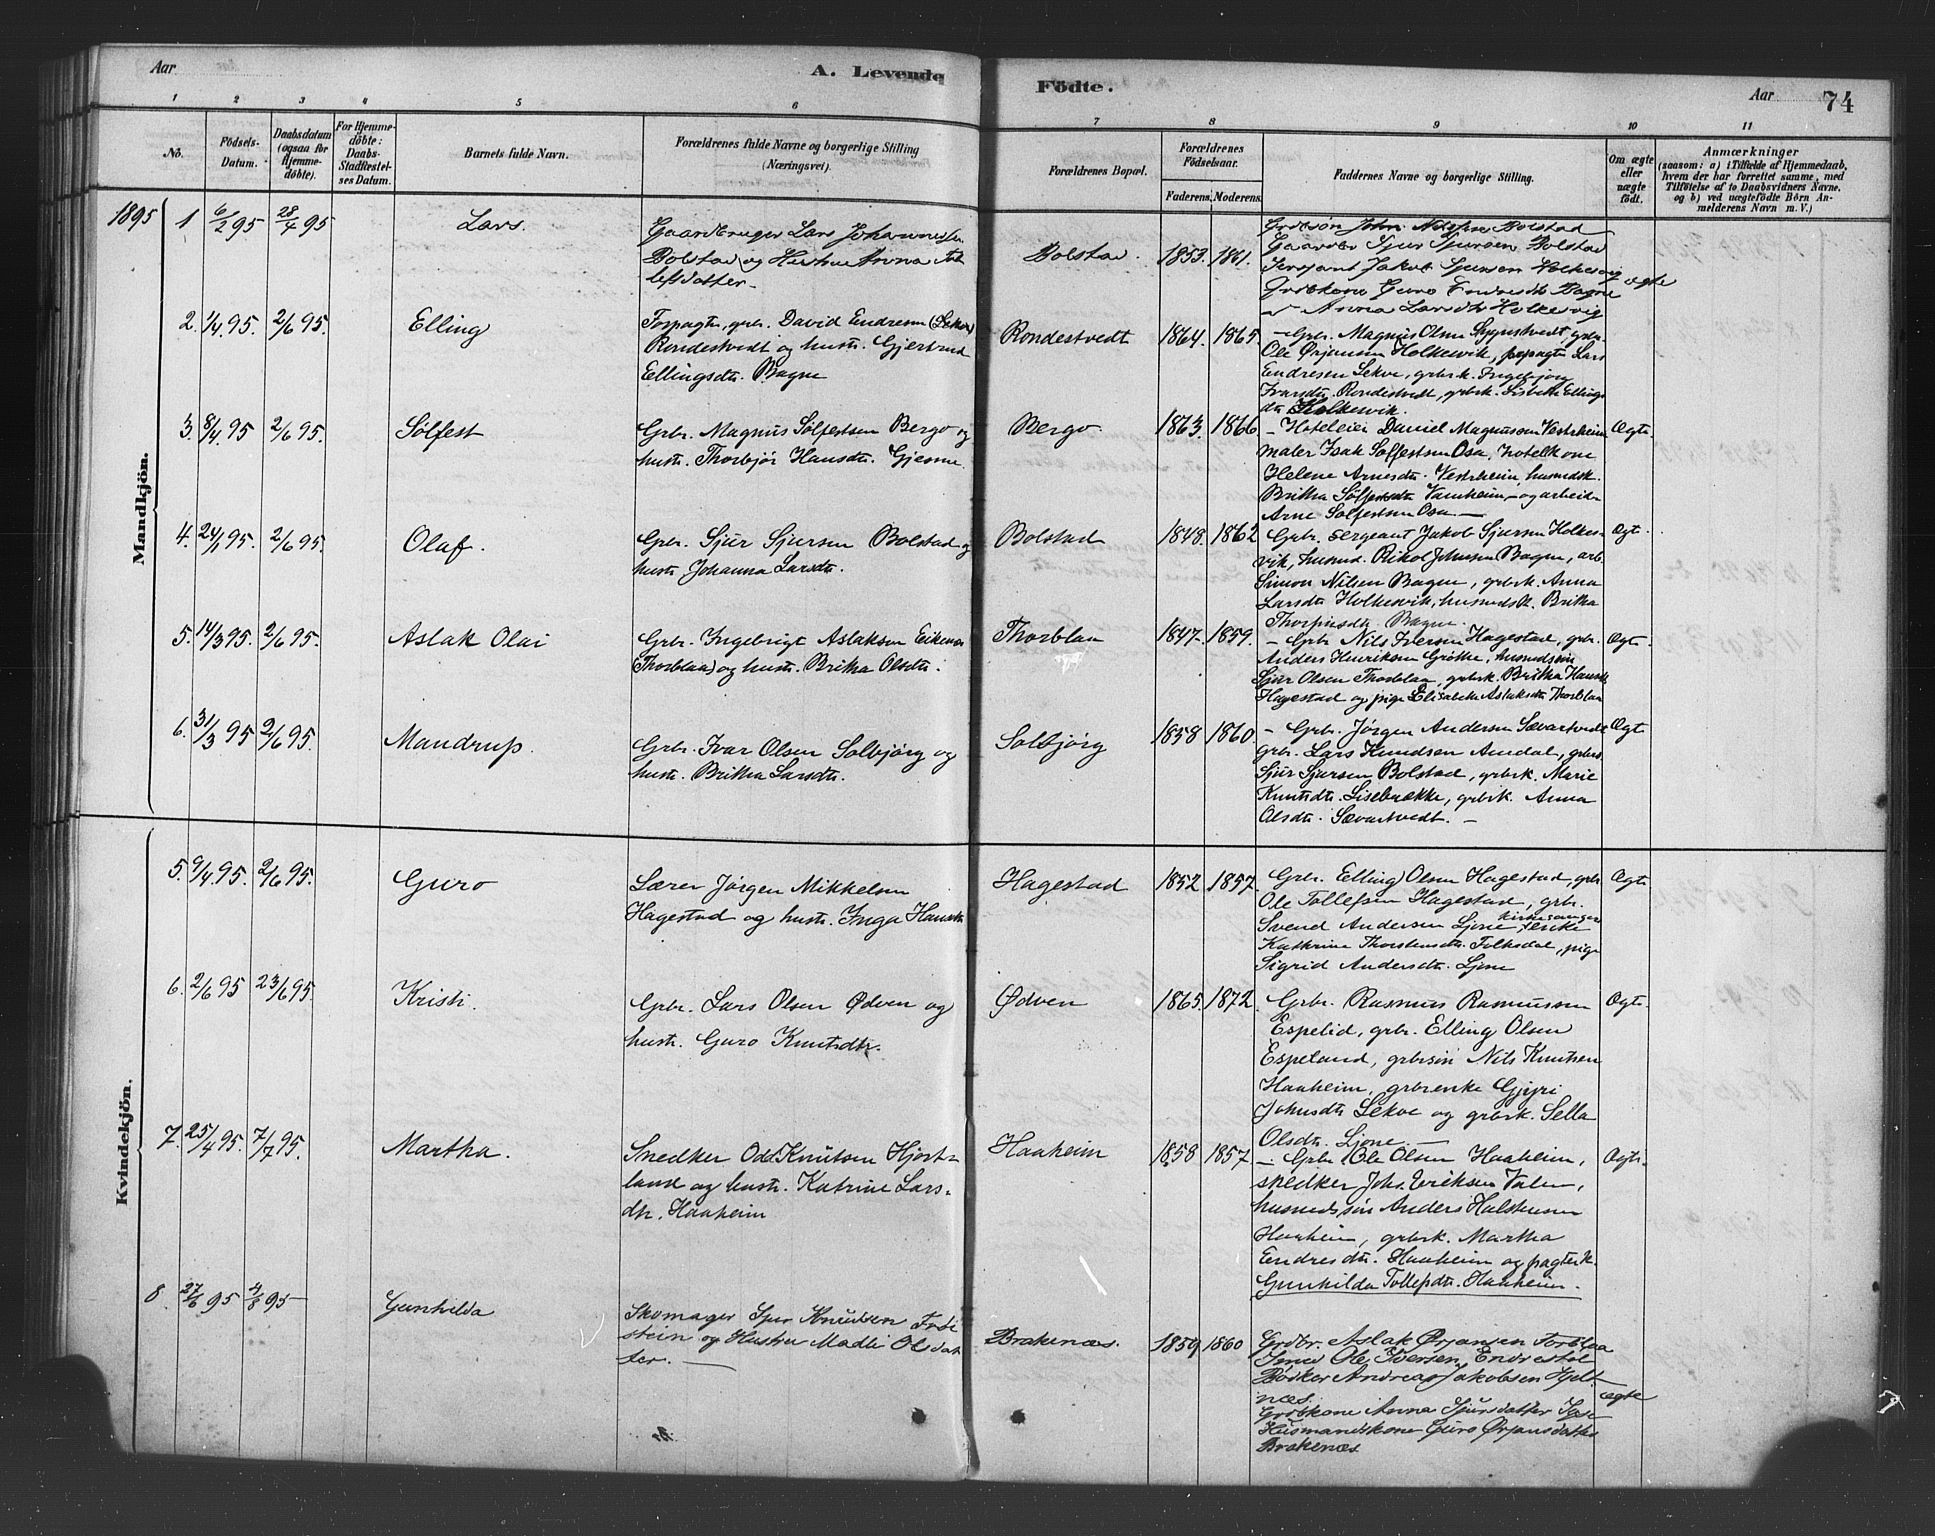 Aar
A. Levende
Födte.
Aar
74
1
2
3
4
5
6
7
8
9
10
11
No.
Födsels-
Datum.
Daabsdatum
(ogsaa for
Hjemme-
döbte).
For Hjemme-
döbte:
Daabs-
Stadfæstel-
ses Datum.
Barnets fulde Navn.
Forældrenes fulde Navne og borgerlige Stilling
(Næringsvei).
Forældrenes Bopæl.
Forældrenes
Födselsaar.
Faderens.
Moderens.
Faddernes Navne og borgerlige Stilling.
Om ægte
eller
uægte
födt.
Anmærkninger
(saasom: a) i Tilfælde af Hjemmedaab,
hvem der har forrettet samme, med
Tilföielse af to Daabsvidners Navne.
og b) ved uægtefödte Börn An-
melderens Navn m. V.)
Mandkjön.
1895
1 6/2 95 28/4 95
Lars.
Gaardbruger Lars Johannessen
Bolstad og Hustru Anna
lefsdatter.
Bolstad. 1853. 1861.
Grdbsøn John Nilssen Bolstad
Gaardbr Sjur Sjursen Bolstad
Sersjant Jakob Sjursen Holkesvig
Grdbkone Guro Endresdtr Bagne
Anna Larsdtr Holkesvig
ægte
2. 1/4 95. 2/6 95.
Elling
Forpagter, grbr. David Endresen (Lekve)
Rondestvedt og hustr. Gjertrud
Ellingsdtr. Bagne
Rondestvedt 1864. 1865.
– Grbr. Magnus Olsen Sygnstvedt, grbr.
Ole Ørjansen Holkesvik, forpagter Lars
Endresen Lekve, grbrk. Ingebjørg
Ivarsdtr. Rondestvedt, grbrk. Lisbeth Ellings
dtr Holkesvik.
3. 8/4 95 2/6 95.
Sølfest
Grbr. Magnus Sølfestsen Bergo og
hustr. Thorbjør Hansdtr. Gjerme
Bergo 1863. 1866
– Hoteleier Daniel Magnussen Vestrheim
maler Isak Sølfestsen Osa, hotelkone
Helene Arnesdtr. Vestrheim, husmdsk.
Britha Sølfestsdtr Vamheim, og arbeider
Arne Sølfestsen Osa. –
Ægte
4. 24/1 95. 2/6 95.
Olaf.
Grbr. Sjur Sjursen Bolstad og
hustr Johanna Larsdtr.
Bolstad 1848. 1862
Grbr. sergeant Jakob Sjursen Holkes-
vik, husmd. Rikol Johnsen Bagne, arb.
Simon Nilsen Bagne, grbrk. Anna
Larsdtr Holkesvik, husmdsk. Britha
Thorfinsdtr Bagne.
Ægte
5. 14/3 95. 2/6 95.
Aslak Olai
Grbr. Ingebrigt Aslaksen Eikenes
(Thorblaa) og hustr. Britha Olsdtr.
Thorblaa 1847. 1859.
– Grbr Nils Iversen Hagestad, grbr.
Anders Henriksen Grøtte, husmdsøn
Sjur Olsen Thorblaa, grbrk. Britha Hansdtr
Hagestad og pige Elisabeth Aslaksdtr Thorblaa
Ægte
6. 31/3 95 2/6 95.
Mandrup.
Grbr. Ivar Olsen Solbjørg og
hustr. Britha Larsdtr.
Solbjørg 1858 1860
– Grbr. Jørgen Andersen Sævartveit
grbr. Lars Knudsen Aandal, grbr.
Sjur Sjursen Bolstad, grbrk. Marie
Knutsdtr. Lisebrække, grbrk. Anna
Olsdtr. Sævartvedt. –
Ægte
Kvindekjön.
5. 9/4 95. 2/6 95.
Guro
Lærer Jørgen Mikkelsen
Hagestad og hustr. Inga Hansdtr
Hagestad 1852 1857.
Grbr. Elling Olsen Hagestad, grbr
Ole Tollefsen Hagestad, grbr.
Svend Andersen Ljone, kirkesanger enke
Kathrine Thorstensdtr. Folkedal, pige
Sigrid Andersdtr. Ljone
Ægte
6. 2/6 95 23/6 95.
Kristi.
Grbr. Lars Olsen Ødven og
hustr. Guro Knutsdtr.
Ødven 1865. 1872.
Grbr. Rasmus Rasmussen
Espelid, grbr. Elling Olsen
Espeland, grbrsøn Nils Knutsen
Haaheim, grbrenke Gjyri
Johnsdtr Lekve og grbrk. Sella
Olsdtr. Ljone. –
Ægte
7. 25/4 95. 7/7 95.
Martha.
Snedker Odd Knutsen Hjost-
land og hustr. Katrine Lars-
dtr. Haaheim
Haaheim 1858 1857
– Grbr Ole Olsen Haaheim,
snedker Johs. Eriksen Valen,
husmdssøn Anders Halstensen
Haaheim, grbrk. Martha
Endresdtr. Haaheim og pagterk.
Gunhilda Tollefsdtr. Haaheim.
Ægte
8. 27/6 95 4/8 95
Gunhilda
Skomager Sjur Knudsen
stein og Hustru Madli Olsdat
ter. –
Brakenæs. 1859 1860
Grdbr. Aslak Ørjansen Torblaa
Smed Ole Iversen Endrestøl
Bødker Andreas Jakobsen Hjelt
næs.
Grdbkone Anna Sjursdatter
Husmandskone Guro Ørjansdatter
Brakenæs
ægte